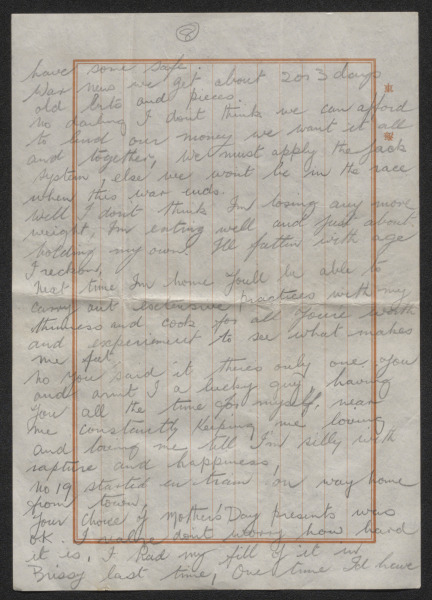 8
have some safe.
War news we get about 2 or 3 days
old bits and pieces.
No darling I dont think we can afford
to lend our money we want it all
and together, we must apply the Jack
system, else we wont be in the race
when this war ends.
Well I dont think Im losing any more
weight, Im eating well and just about
holding my own. Ill fatten with age
I reckon,
Next time Im home Youll be able to
carry out extensive practices with my
thinness and cook for all Youre worth
and experiment to see what makes
me fat.
No You said it theres only one you
and arnt I a lucky guy, having
You all the time for myself, near
me constantly keeping me loving
and loving me till Im silly with
rapture and happiness,
No 19 started in train on way home
from town,
Your choice of Mother's Day presents was
OK. I realize dont worry how hard
it is, I had my fill of it in
Brissy last time, One time I'd have
東